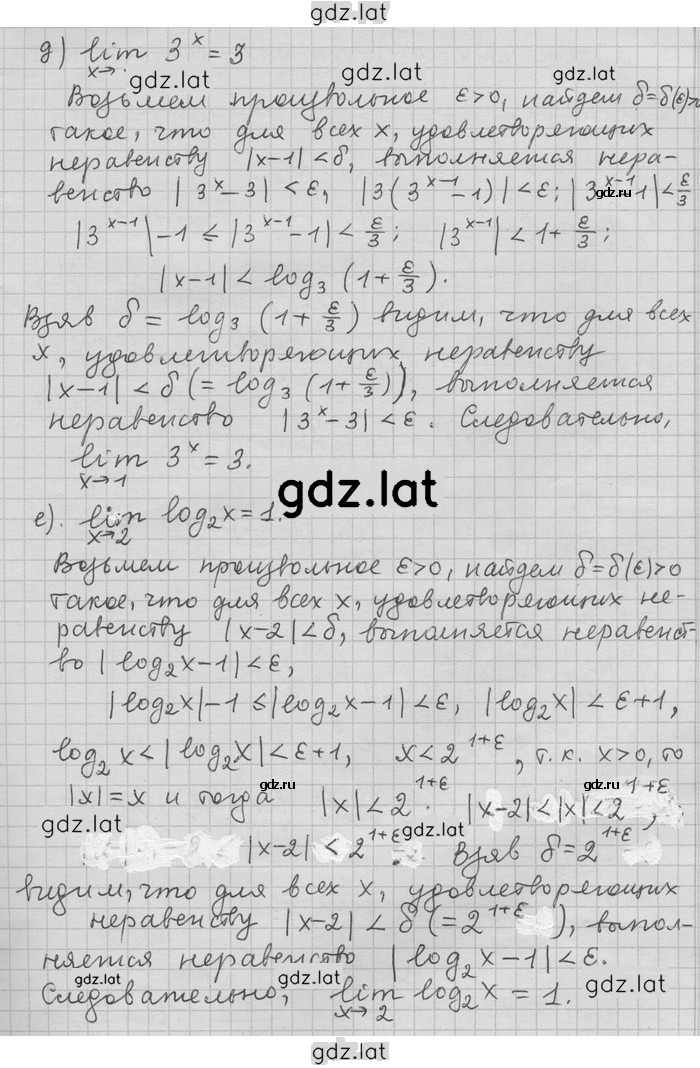 gdz.lat
д) lim 3^x = 3
x→
gdz.lat
gdz.lat
Возьмем произвольное ε>0, найдем δ=δ(ε)>0
такое, что для всех x, удовлетворяющих
неравенству |x−1|<δ, выполняется нера-
венство |3^x−3|<ε, |3(3^{x−1}−1)|<ε; |3^{x−1}−1|<ε/3
gdz.ru
|3^{x−1}|−1 ≤ |3^{x−1}−1| < ε/3; |3^{x−1}| < 1+ε/3;
|x−1| < log₃(1+ε/3).
Взяв δ = log₃(1+ε/3) видим, что для всех
x, удовлетворяющих неравенству
|x−1| < δ (= log₃(1+ε/3)), выполняется
неравенство |3^x−3|<ε. Следовательно,
lim 3^x = 3.
x→1
gdz.lat
е). lim log₂x = 1.
x→2
Возьмем произвольное ε>0, найдем δ=δ(ε)>0
такое, что для всех x, удовлетворяющих не-
равенству |x−2|<δ, выполняется неравенст-
во |log₂x−1|<ε,
|log₂x|−1 ≤ |log₂x−1| < ε, |log₂x| < ε+1,
log₂x < |log₂x| < ε+1, x < 2^{1+ε}, т.к. x>0, то
gdz.ru
gdz.ru
|x|=x и тогда |x| < 2^{1+ε}. |x−2|<|x|<2^{1+ε},
gdz.lat
gdz.lat
|x−2| < 2^{1+ε}. Взяв δ=2^{1+ε}
видим, что для всех x, удовлетворяющих
неравенству |x−2| < δ (=2^{1+ε}), выпол-
няется неравенство |log₂x−1|<ε.
gdz.lat
gdz.lat
gdz.lat
Следовательно, lim log₂x = 1.
x→2
gdz.lat